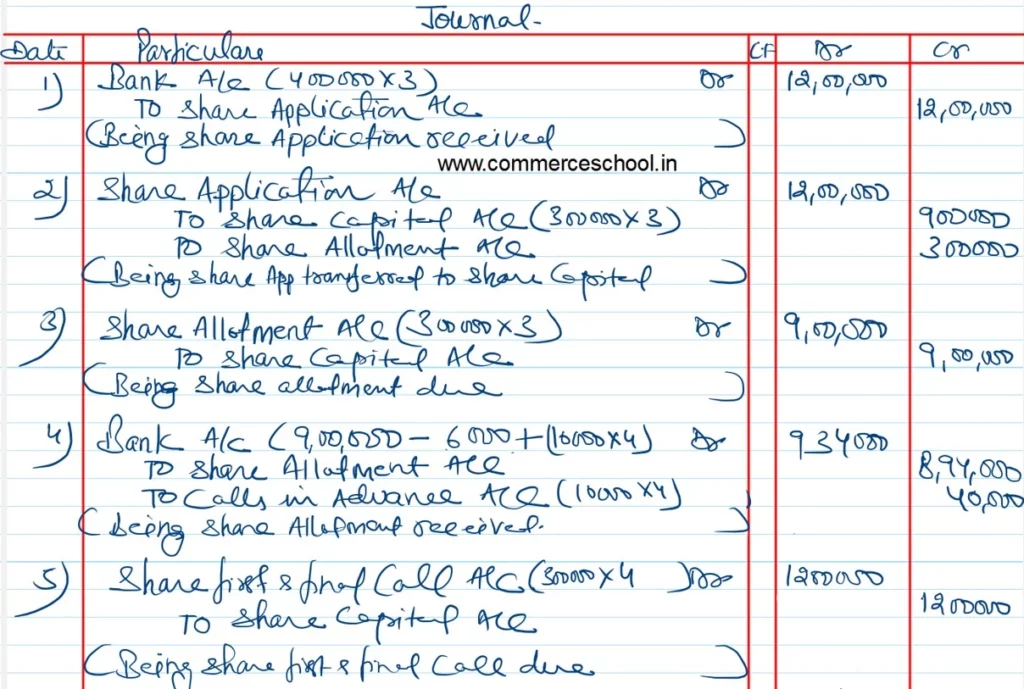 Journal-
Date Particulars CF Dr Cr
1) Bank A/c (400000×3) Dr 12,00,000
To Share Application A/c 12,00,000
(Being share Application received)
www.commerceschool.in
2) Share Application A/c Dr 12,00,000
To Share Capital A/c (300000×3) 900000
To Share Allotment A/c 300000
(Being share App transferred to share Capital)
3) Share Allotment A/c (300000×3) Dr 9,00,000
To Share Capital A/c 9,00,000
(Being share allotment due)
4) Bank A/c (9,00,000 - 6000 + (10000×4) Dr 934000
To Share Allotment A/c 8,94,000
To Calls in Advance A/c (10000×4) 40,000
(Being share Allotment received.)
5) Share first & final Call A/c (300000×4 ) Dr 1200000
To Share Capital A/c 1200000
(Being share first & final Call due)